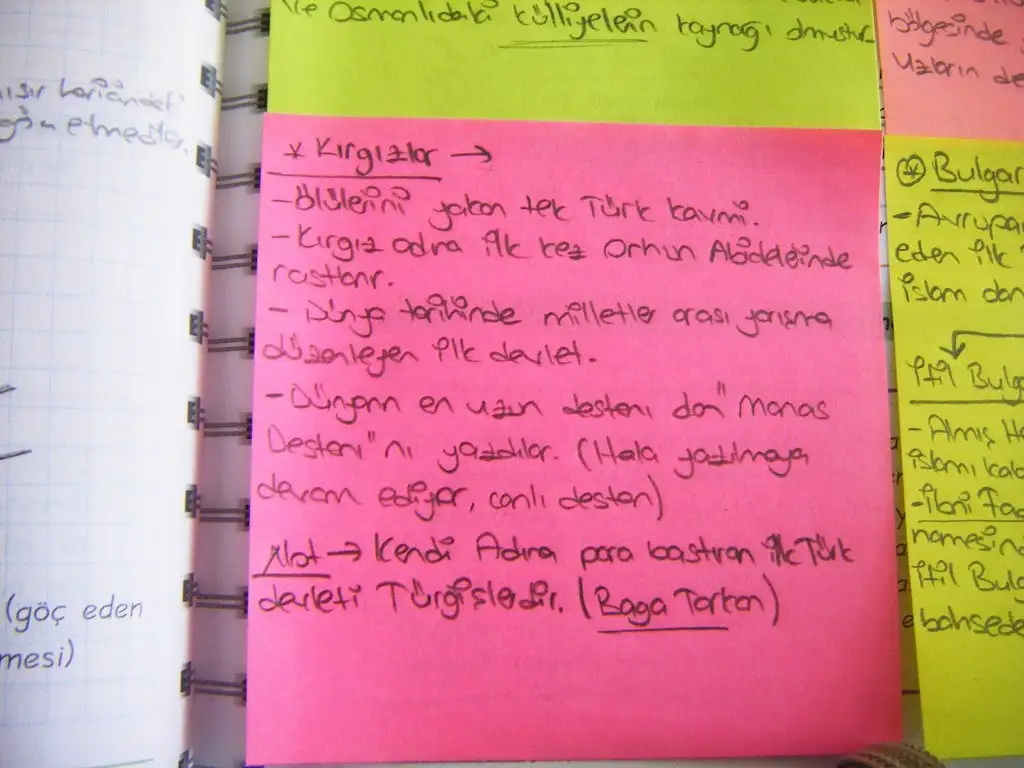 ve Osmanlıdaki külliyelein kaynağı olmuştur
* Kırgızlar →
- Ölülerini yakan tek Türk kavmi.
- Kırgız adına ilk kez Orhun Abidelerinde
rastlanır.
- Dünya tarihinde milletler arası yarışma
düzenleyen ilk devlet.
- Dünyanın en uzun destanı olan "Manas
Destanı"nı yazdılar. (Hala yazılmaya
devam ediyor, canlı destan)
*Not → Kendi Adına para bastıran ilk Türk
devleti Türgişlerdir. (Baga Tarkan)
bölgesinde
Uzların de
* Bulgar
- Avrupa
eden ilk
İslam dan
İtil Bulg
- Almış Ha
islamı
-İbni Fad
namesind
İtil Bulg
bahsede
etmediler.
(göç eden
mesi)